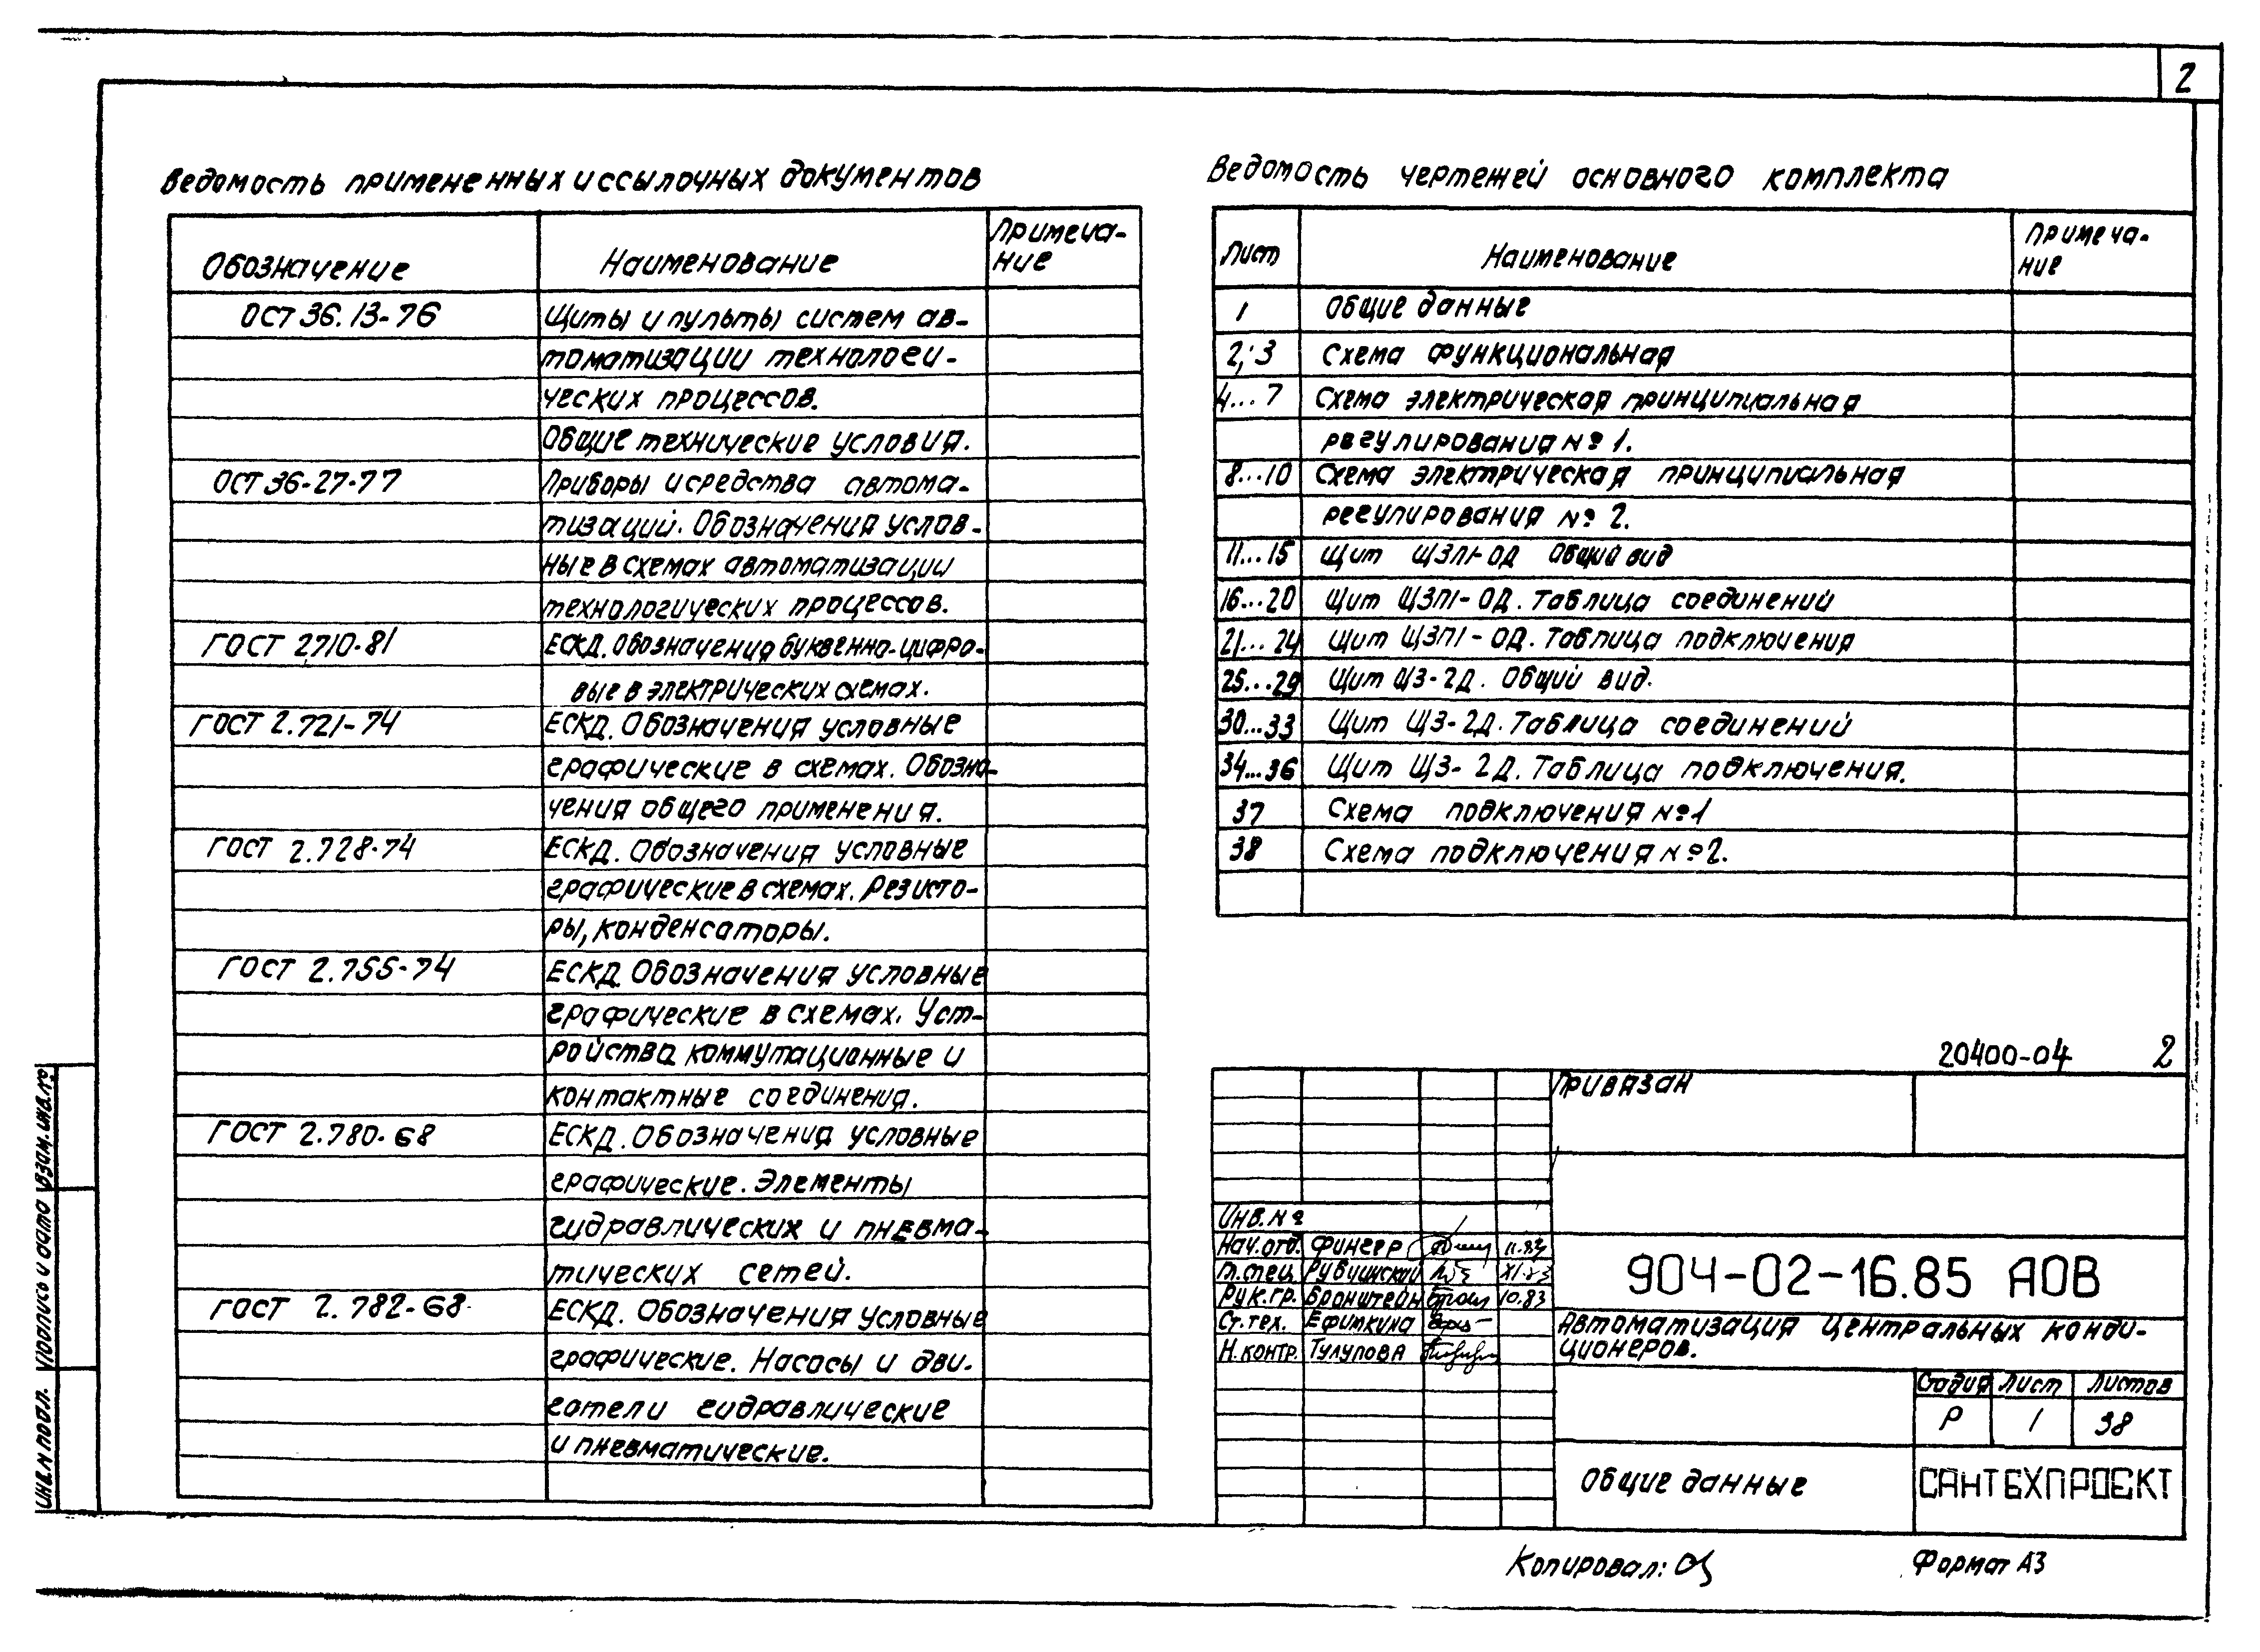 2
Ведомость примененных и ссылочных документов
Обозначение Наименование Примеча-
ние
ОСТ 36.13-76 Щиты и пульты систем ав-
томатизации технологи-
ческих процессов.
Общие технические условия.
ОСТ 36-27-77 Приборы и средства автома-
тизаций. Обозначения услов-
ные в схемах автоматизации
технологических процессов.
ГОСТ 2710-81 ЕСКД. Обозначения буквенно-цифро-
вые в электрических схемах.
ГОСТ 2.721-74 ЕСКД. Обозначения условные
графические в схемах. Обозна-
чения общего применения.
ГОСТ 2.728-74 ЕСКД. Обозначения условные
графические в схемах. Резисто-
ры, конденсаторы.
ГОСТ 2.755-74 ЕСКД. Обозначения условные
графические в схемах. Уст-
ройства коммутационные и
контактные соединения.
ГОСТ 2.780-68 ЕСКД. Обозначения условные
графические. Элементы
гидравлических и пневма-
тических сетей.
ГОСТ 2.782-68 ЕСКД. Обозначения условные
графические. Насосы и дви-
гатели гидравлические
и пневматические.
Ведомость чертежей основного комплекта
Лист Наименование Примеча-
ние
1 Общие данные
2; 3 Схема функциональная
4...7 Схема электрическая принципиальная
регулирования №1.
8...10 Схема электрическая принципиальная
регулирования №2.
11...15 Щит ЩЗП1-ОД Общий вид
16...20 Щит ЩЗП1-ОД. Таблица соединений
21...24 Щит ЩЗП1-ОД. Таблица подключения
25...29 Щит ЩЗ-2Д. Общий вид.
30...33 Щит ЩЗ-2Д. Таблица соединений
34...36 Щит ЩЗ-2Д. Таблица подключения.
37 Схема подключения №1
38 Схема подключения №2.
20400-04 2
Привязан
Инв.№
Нач.отд. Фингер 11.83
Гл.спец. Рубчинский XI.83
Рук.гр. Бронштейн 10.83
Ст.тех. Ефимкина
Н.контр. Тулупова
904-02-16.85 АОВ
Автоматизация центральных конди-
ционеров.
Стадия Лист Листов
Р 1 38
Общие данные
САНТЕХПРОЕКТ
Инв.№ подл. Подпись и дата Взам.инв.№
Копировал:
Формат А3